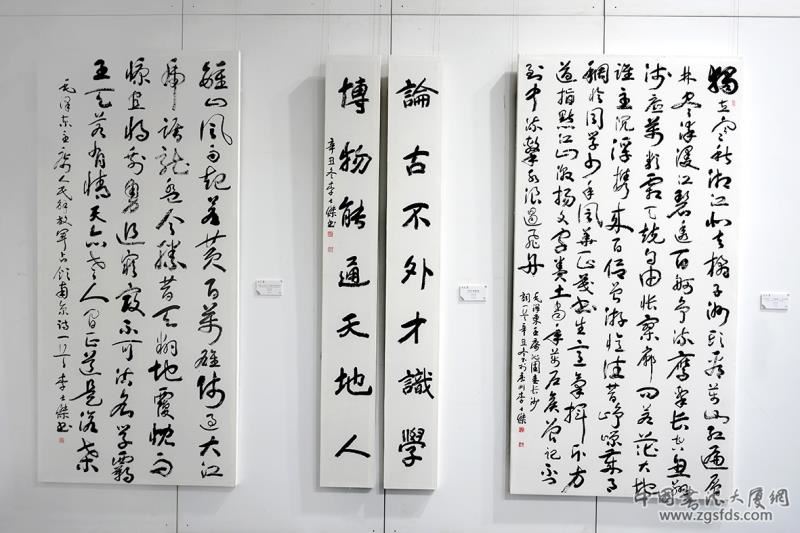 獨立寒秋湘江北去橘子洲頭看萬山紅遍層
林盡染漫江碧透百舸爭流鷹擊長空魚翔
淺底萬類霜天競自由悵寥廓問蒼茫大地
誰主沉浮攜來百侶曾游憶往昔崢嶸歲月
稠恰同學少年風華正茂書生意氣揮斥方
遒指點江山激揚文字糞土當年萬戶侯曾記否
到中流擊水浪遏飛舟
毛澤東主席沁園春長沙
詞一首辛丑冬李士傑
論古不外才識學
博物能通天地人
辛丑冬李士傑書
鍾山風雨起蒼黃百萬雄師過大江
虎踞龍盤今勝昔天翻地覆慨而
慷宜將剩勇追窮寇不可沽名學霸
王天若有情天亦老人間正道是滄桑
毛澤東主席人民解放軍占領南京詩一首李士傑書
中国书法大厦網
www.zgsfds.com